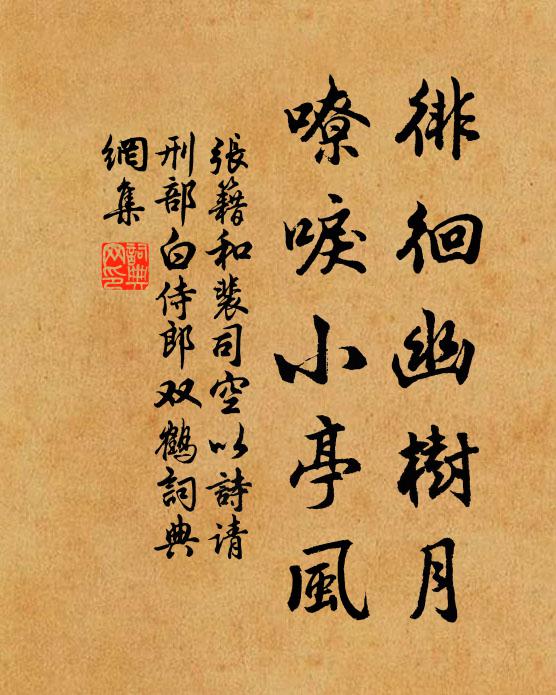 徘徊幽樹月
嘹唳小亭風
張籍和裴司空以詩请
刑部白侍郎双鶴詞典
網集
詞典
网印